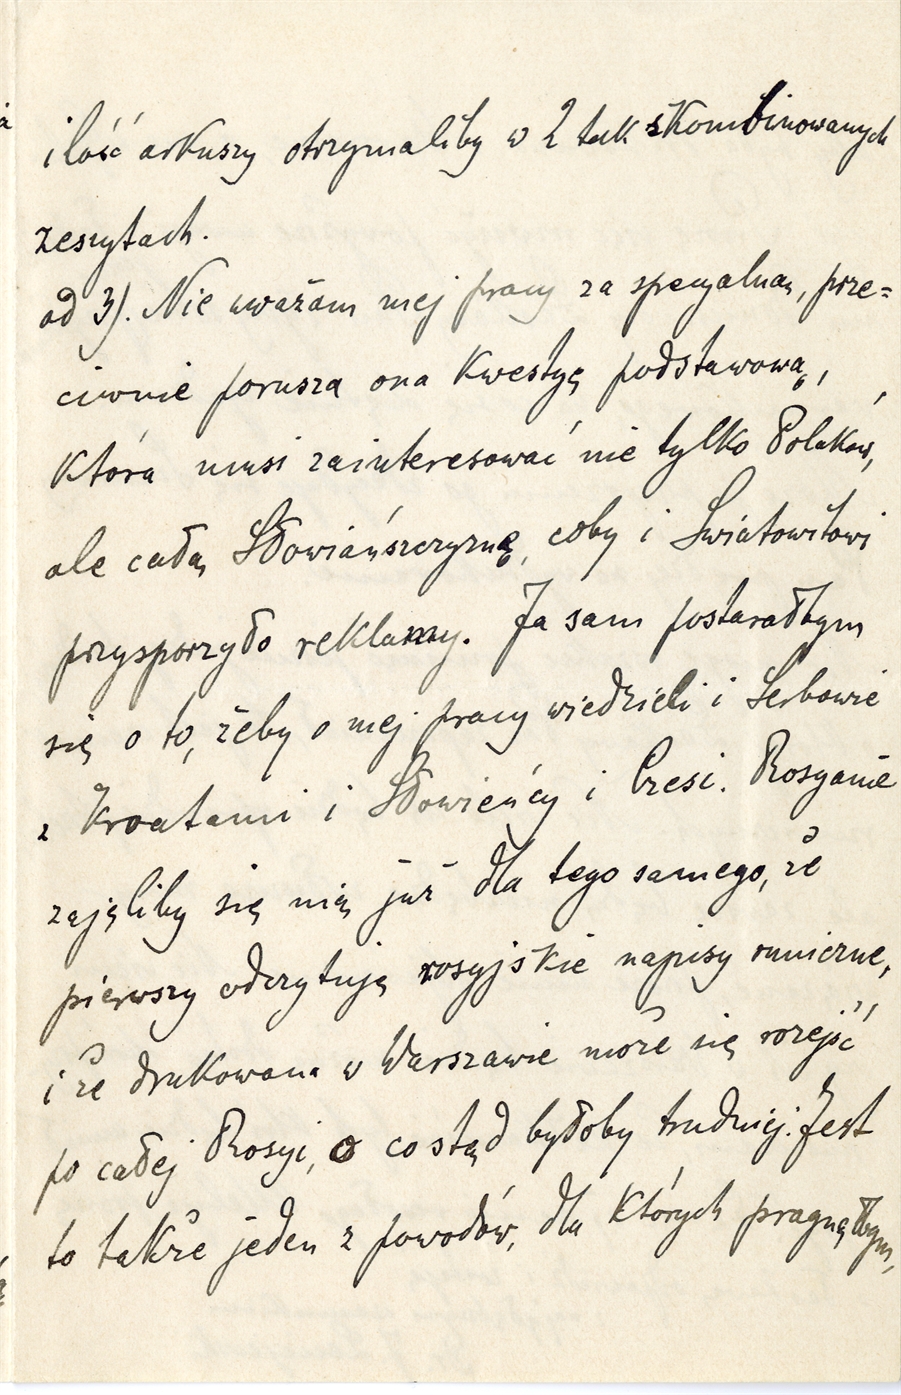 ilość arkuszy otrzymaliby w 2 tak skombinowanych
zeszytach.
ad 3). Nie uważam mej pracy za specyalną, prze=
ciwnie porusza ona kwestyę podstawową,
która musi zainteresować nie tylko Polaków,
ale całą Słowiańszczyznę, coby i Światowitowi
przysporzyło reklamy. Ja sam postarałbym
się o to, żeby o mej pracy wiedzieli i Serbowie
z Kroatami i Słowieńcy i Czesi. Rosyanie
zajęliby się nią już dla tego samego, że
pierwszy odczytuję rosyjskie napisy runiczne,
i że drukowana w Warszawie może się rozejść
po całej Rosyi, o co stąd byłoby trudniej. Jest
to także jeden z powodów, dla których pragnąłbym,